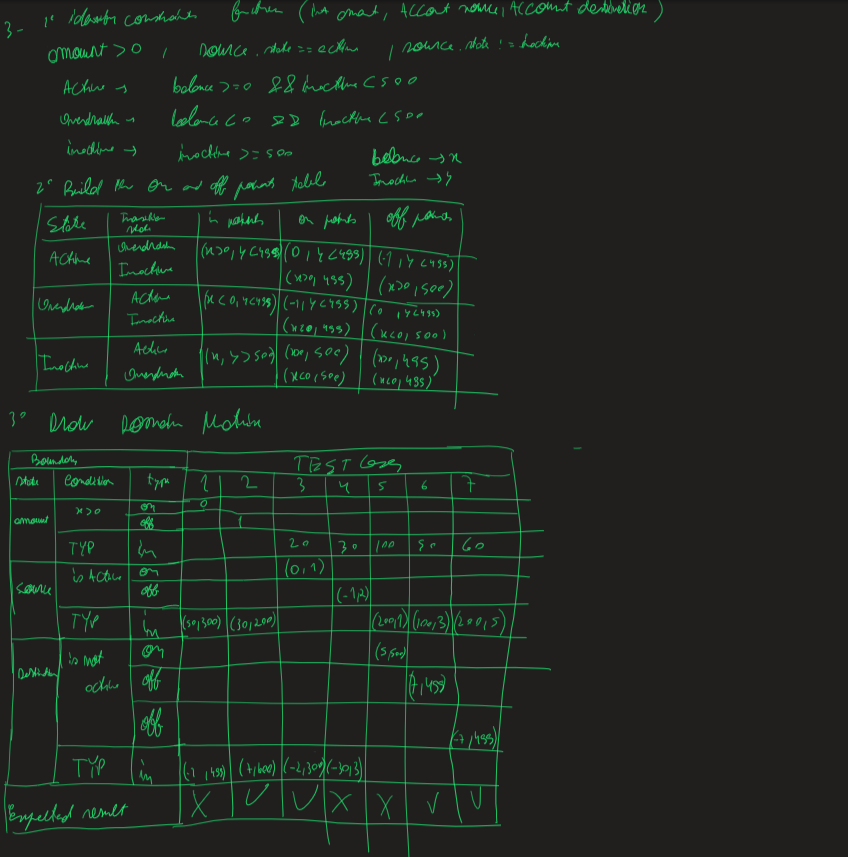 3- 1º identify constraints function (int amount, Account source, Account destination)
amount > 0 , source.state == active , source.state != inactive
Active → balance >= 0 && inactive < 500
Overdrawn → balance < 0 && inactive < 500
inactive → inactive >= 500 balance → x
2º Build the on and off points table Inactive → y
State Transition state in points on points off points
Active Overdrawn (x>0, y<499) (0, y<499) (-1, y<499)
Inactive (x>0, 499) (x>0, 500)
Overdrawn Active (x<0, y<499) (-1, y<499) (0, y<499)
Inactive (x<0, 499) (x<0, 500)
Inactive Active (x, y>500) (x>0, 500) (x>0, 499)
Overdrawn (x<0, 500) (x<0, 499)
3º Draw Domain Matrix
Boundary TEST Cases
State Condition type 1 2 3 4 5 6 7
amount x>0 on 0
off 1
TYP in 20 30 100 50 60
source is Active on (0,1)
off (-1,2)
TYP in (50,300) (30,200) (200,1) (100,3) (200,5)
Destination is not active on (5,500)
off (7,499)
off (-7,499)
TYP in (-1,499) (7,600) (-2,300) (-30,3)
Expected result X V V X X V V